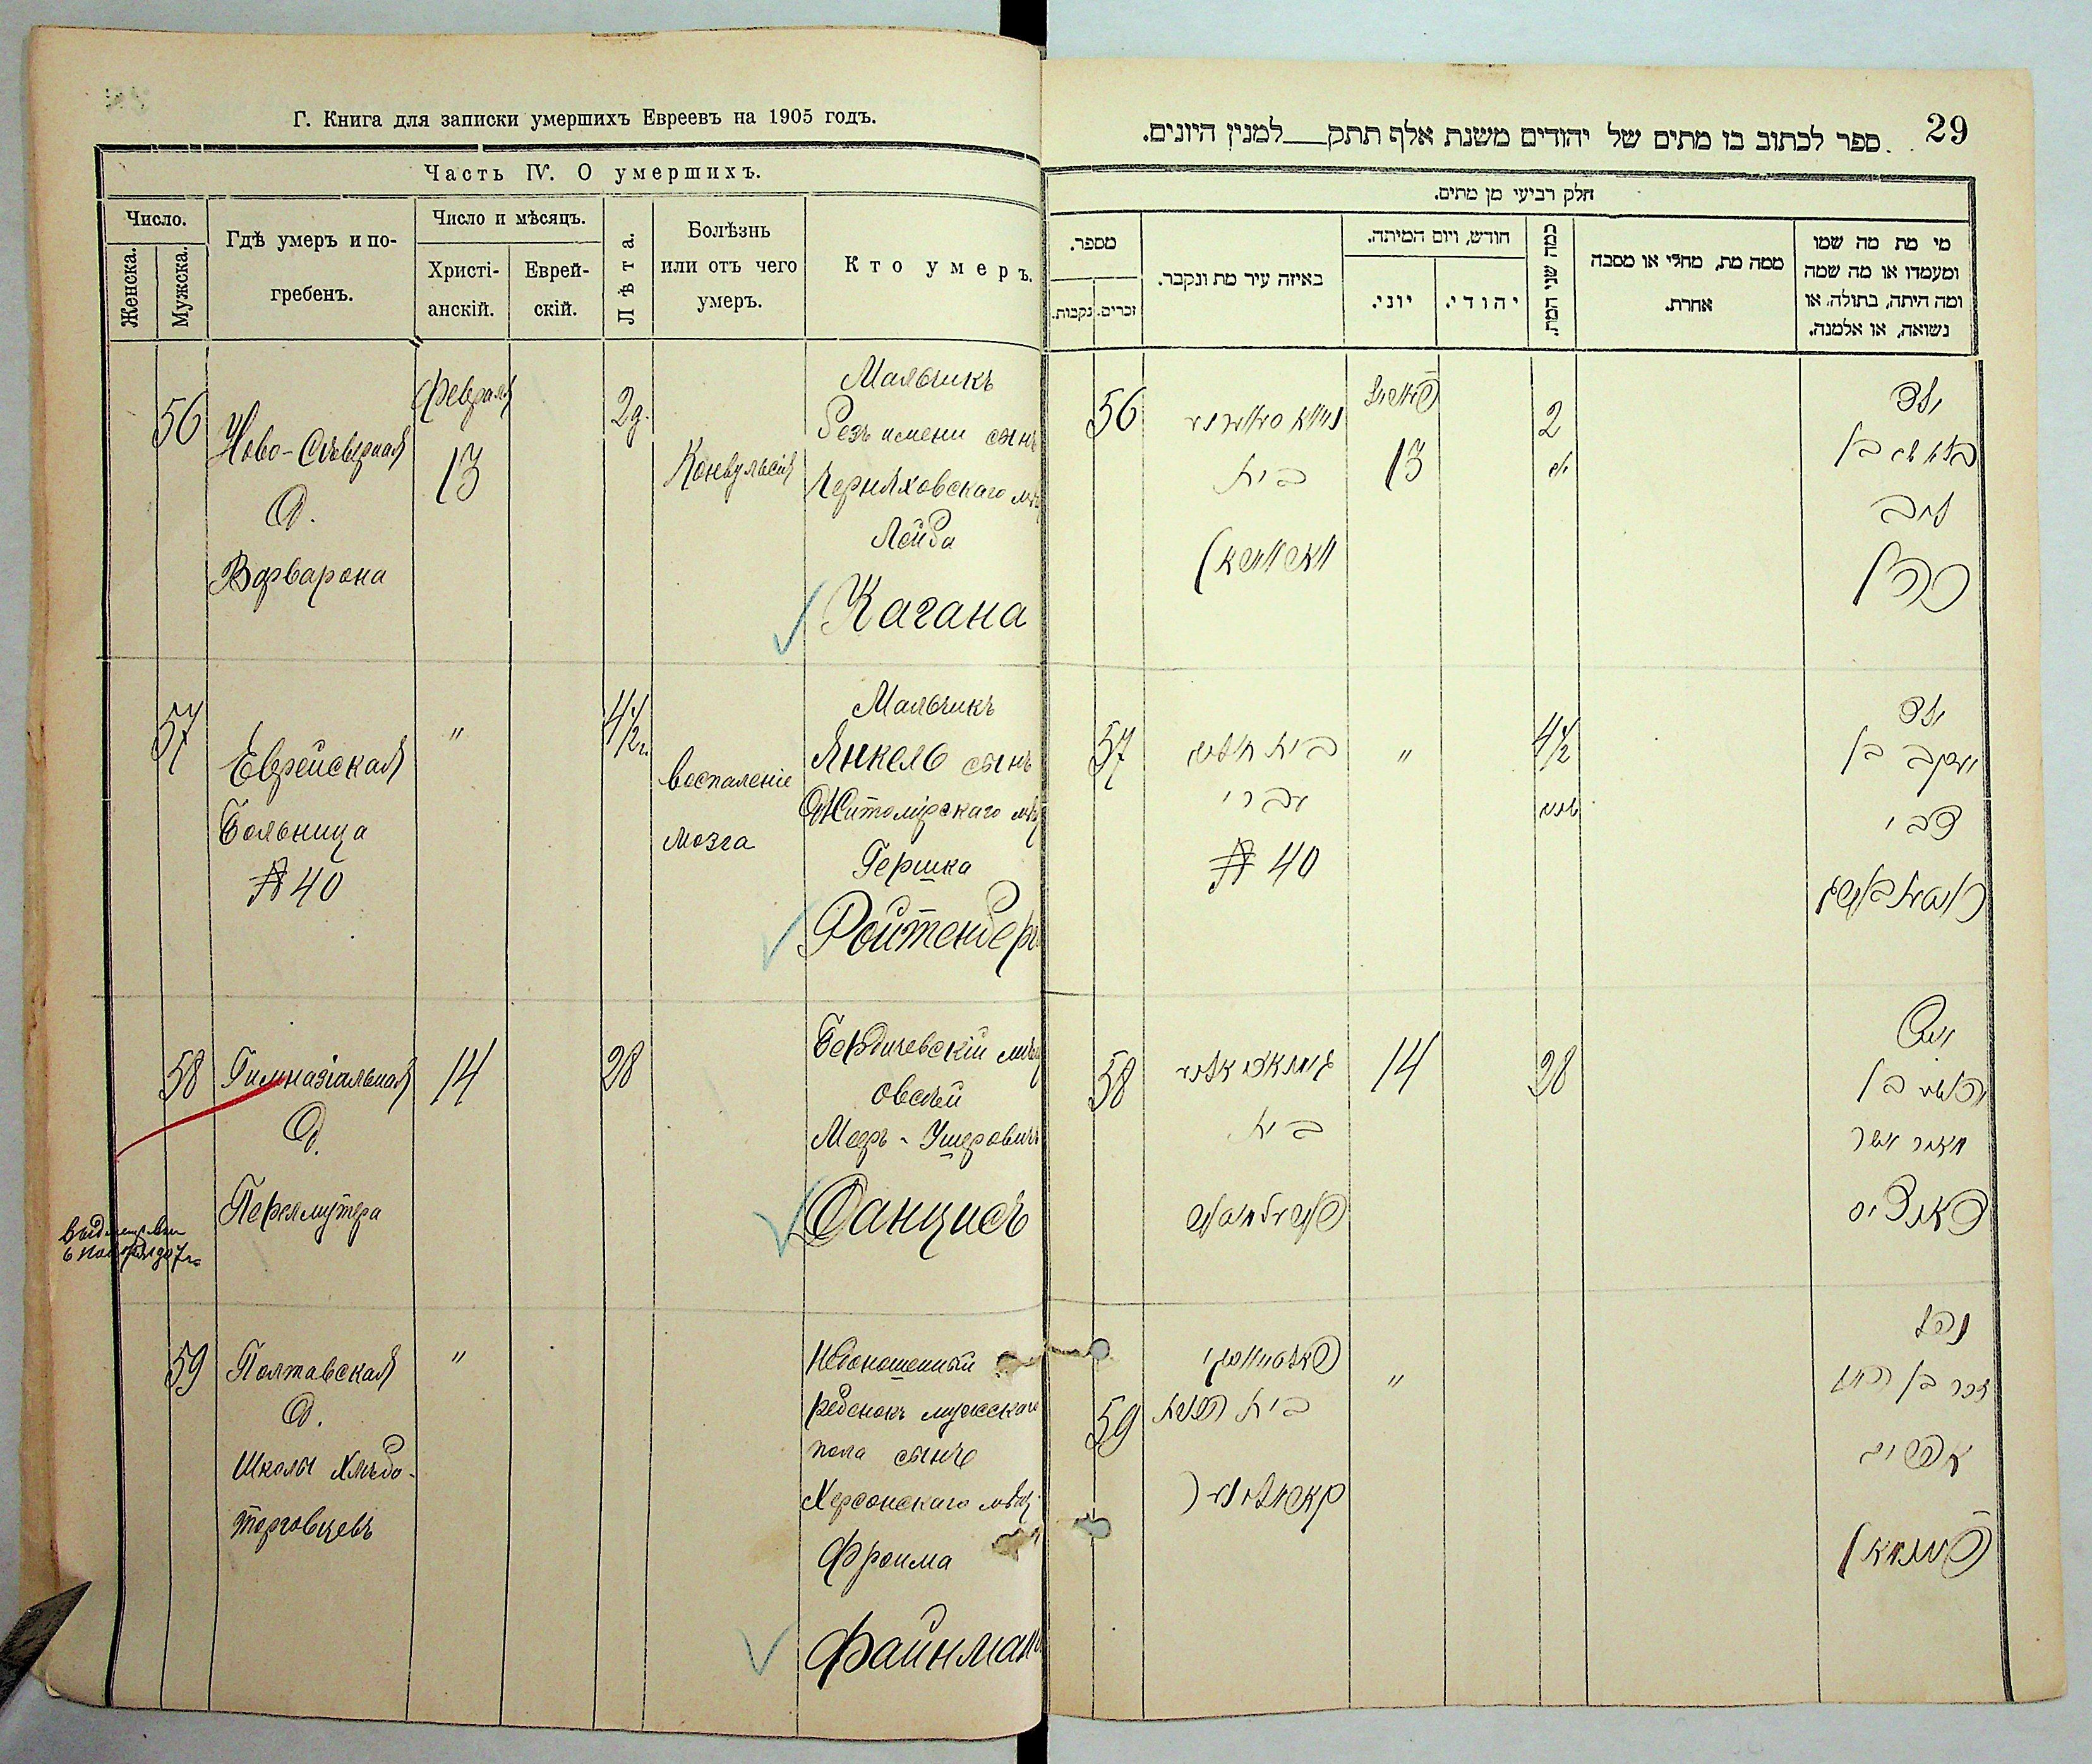 Г. Книга для записки умершихъ Евреевъ на 1905 годъ.
Часть IV. О умершихъ.
Число.
Женска.
Мужска.
Гдѣ умеръ и по-
гребенъ.
Число и мѣсяцъ.
Христі-
анскій.
Еврей-
скій.
Лѣта.
Болѣзнь
или отъ чего
умеръ.
Кто умеръ.
56
Ново-Сѣверная
д.
Варварона
Февраля
13
2 д.
Конвульсія
Мальчикъ
безъ имени сынъ
Черняховскаго мѣщ
Лейба
Кагана
57
Еврейская
Больница
№ 40
"
4 1/2 г.
воспаленіе
мозга
Мальчикъ
Янкель сынъ
Житомірскаго мѣщ
Гершка
Ройтенберг
58
Гимназіальная
д.
Перельмутера
14
28
Бердичевскій мѣщ
Овсѣй
Мееръ-Ушеровичъ
Данцисъ
6 ноября 1907 г.
59
Полтавская
д.
Школы Хлѣбо-
торговцевъ
"
Недоношенный
ребенокъ мужскаго
пола сынъ
Херсонскаго мѣщ.
Фроима
Файнман
29
ספר לכתוב בו מתים של יהודים משנת אלף תתק___למנין היונים.
חלק רביעי מן מתים.
מספר.
זכרים.
נקבות.
באיזה עיר מת ונקבר.
חודש, ויום המיתה.
יוני.
יהודי.
כמה שני המת.
ממה מת, מחלי או מסבה
אחרת.
מי מת מה שמו
ומעמדו או מה שמה
ומה היתה, בתולה, או
נשואה, או אלמנה.
56
בית
13
2
ילד
בלא שם בן
ליב
כהן
57
בית חולים
עברי
№ 40
"
4 1/2
שנה
ילד
יעקב בן
צבי
58
בית
14
28
איש
יהושע בן
מאיר אשר
דאנציס
59
"
נפל
זכר בן
אפרים
פיינמאן